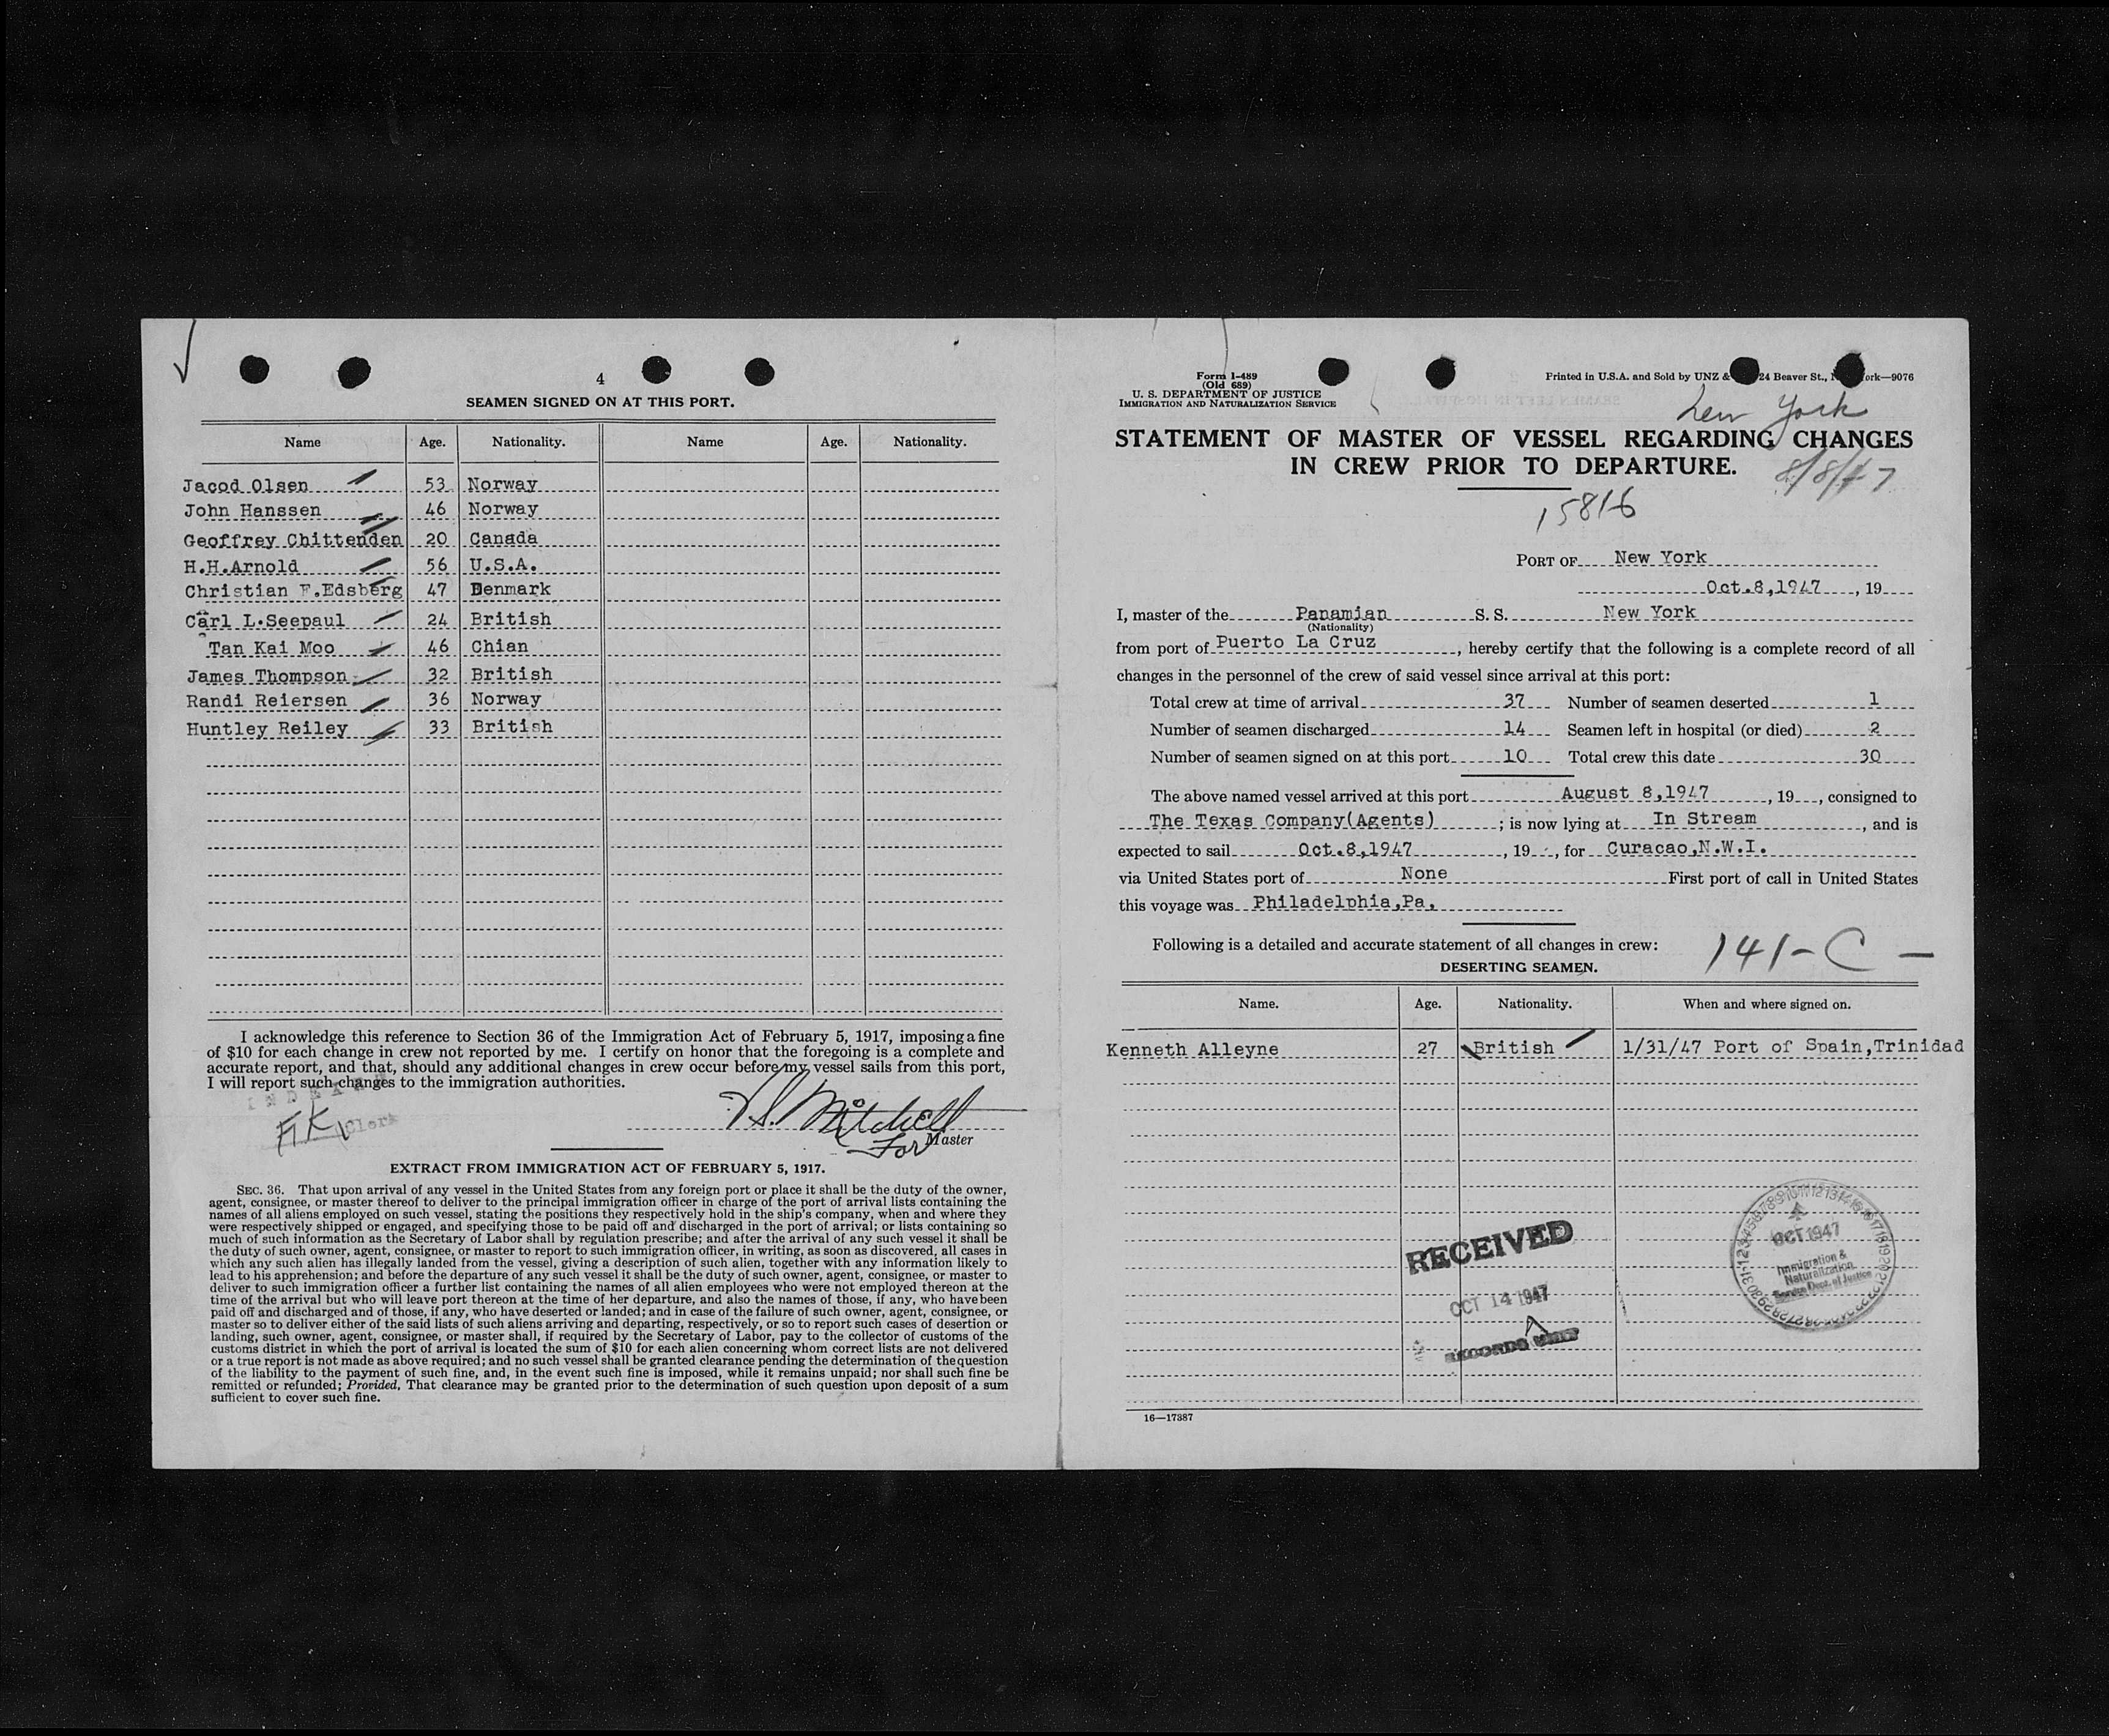 4
SEAMEN SIGNED ON AT THIS PORT.
Name Age. Nationality. Name Age. Nationality.
Jacod Olsen 53 Norway
John Hanssen 46 Norway
Geoffrey Chittenden 20 Canada
H.H.Arnold 56 U.S.A.
Christian F.Edsberg 47 Denmark
Carl L.Seepaul 24 British
Tan Kai Moo 46 Chian
James Thompson 32 British
Randi Reiersen 36 Norway
Huntley Reiley 33 British
I acknowledge this reference to Section 36 of the Immigration Act of February 5, 1917, imposing a fine
of $10 for each change in crew not reported by me. I certify on honor that the foregoing is a complete and
accurate report, and that, should any additional changes in crew occur before my vessel sails from this port,
I will report such changes to the immigration authorities.
INDEXED
FK Clerk
Mitchell
For Master
EXTRACT FROM IMMIGRATION ACT OF FEBRUARY 5, 1917.
SEC. 36. That upon arrival of any vessel in the United States from any foreign port or place it shall be the duty of the owner,
agent, consignee, or master thereof to deliver to the principal immigration officer in charge of the port of arrival lists containing the
names of all aliens employed on such vessel, stating the positions they respectively hold in the ship's company, when and where they
were respectively shipped or engaged, and specifying those to be paid off and discharged in the port of arrival; or lists containing so
much of such information as the Secretary of Labor shall by regulation prescribe; and after the arrival of any such vessel it shall be
the duty of such owner, agent, consignee, or master to report to such immigration officer, in writing, as soon as discovered, all cases in
which any such alien has illegally landed from the vessel, giving a description of such alien, together with any information likely to
lead to his apprehension; and before the departure of any such vessel it shall be the duty of such owner, agent, consignee, or master to
deliver to such immigration officer a further list containing the names of all alien employees who were not employed thereon at the
time of the arrival but who will leave port thereon at the time of her departure, and also the names of those, if any, who have been
paid off and discharged and of those, if any, who have deserted or landed; and in case of the failure of such owner, agent, consignee, or
master so to deliver either of the said lists of such aliens arriving and departing, respectively, or so to report such cases of desertion or
landing, such owner, agent, consignee, or master shall, if required by the Secretary of Labor, pay to the collector of customs of the
customs district in which the port of arrival is located the sum of $10 for each alien concerning whom correct lists are not delivered
or a true report is not made as above required; and no such vessel shall be granted clearance pending the determination of the question
of the liability to the payment of such fine, and, in the event such fine is imposed, while it remains unpaid; nor shall such fine be
remitted or refunded; Provided, That clearance may be granted prior to the determination of such question upon deposit of a sum
sufficient to cover such fine.
Form I-489
(Old 689)
U. S. DEPARTMENT OF JUSTICE
IMMIGRATION AND NATURALIZATION SERVICE
Printed in U.S.A. and Sold by UNZ & 24 Beaver St., ork—9076
New York
STATEMENT OF MASTER OF VESSEL REGARDING CHANGES
IN CREW PRIOR TO DEPARTURE.
8/8/47
15816
PORT OF New York
Oct.8,1947, 19
I, master of the Panamian S. S. New York
(Nationality)
from port of Puerto La Cruz, hereby certify that the following is a complete record of all
changes in the personnel of the crew of said vessel since arrival at this port:
Total crew at time of arrival 37 Number of seamen deserted 1
Number of seamen discharged 14 Seamen left in hospital (or died) 2
Number of seamen signed on at this port 10 Total crew this date 30
The above named vessel arrived at this port August 8,1947, 19, consigned to
The Texas Company(Agents) ; is now lying at In Stream, and is
expected to sail Oct.8,1947, 19, for Curacao,N.W.I.
via United States port of None First port of call in United States
this voyage was Philadelphia,Pa,
Following is a detailed and accurate statement of all changes in crew:
141-C-
DESERTING SEAMEN.
Name. Age. Nationality. When and where signed on.
Kenneth Alleyne 27 British 1/31/47 Port of Spain,Trinidad
RECEIVED
OCT 14 1947
RECORDS UNIT
OCT 1947
Immigration &
Naturalization
Service Dept. of Justice
16—17387